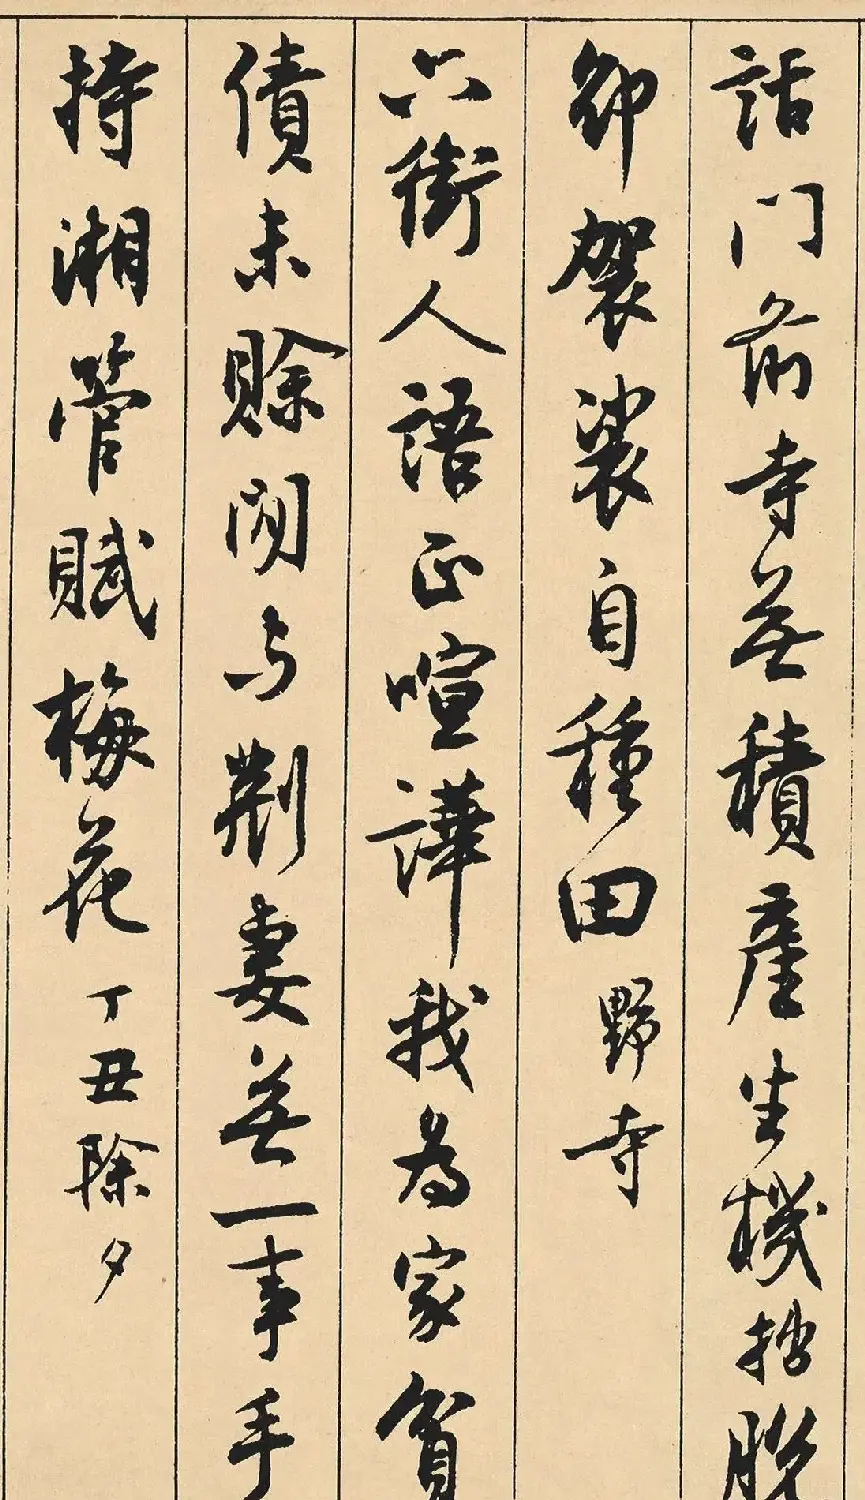 話门前寺無積產生機拙脫
卻袈裟自種田 野寺
六街人語正喧譁我為家貧
債未賒閒与荆妻無一事手
持湘管賦梅花 丁丑除夕